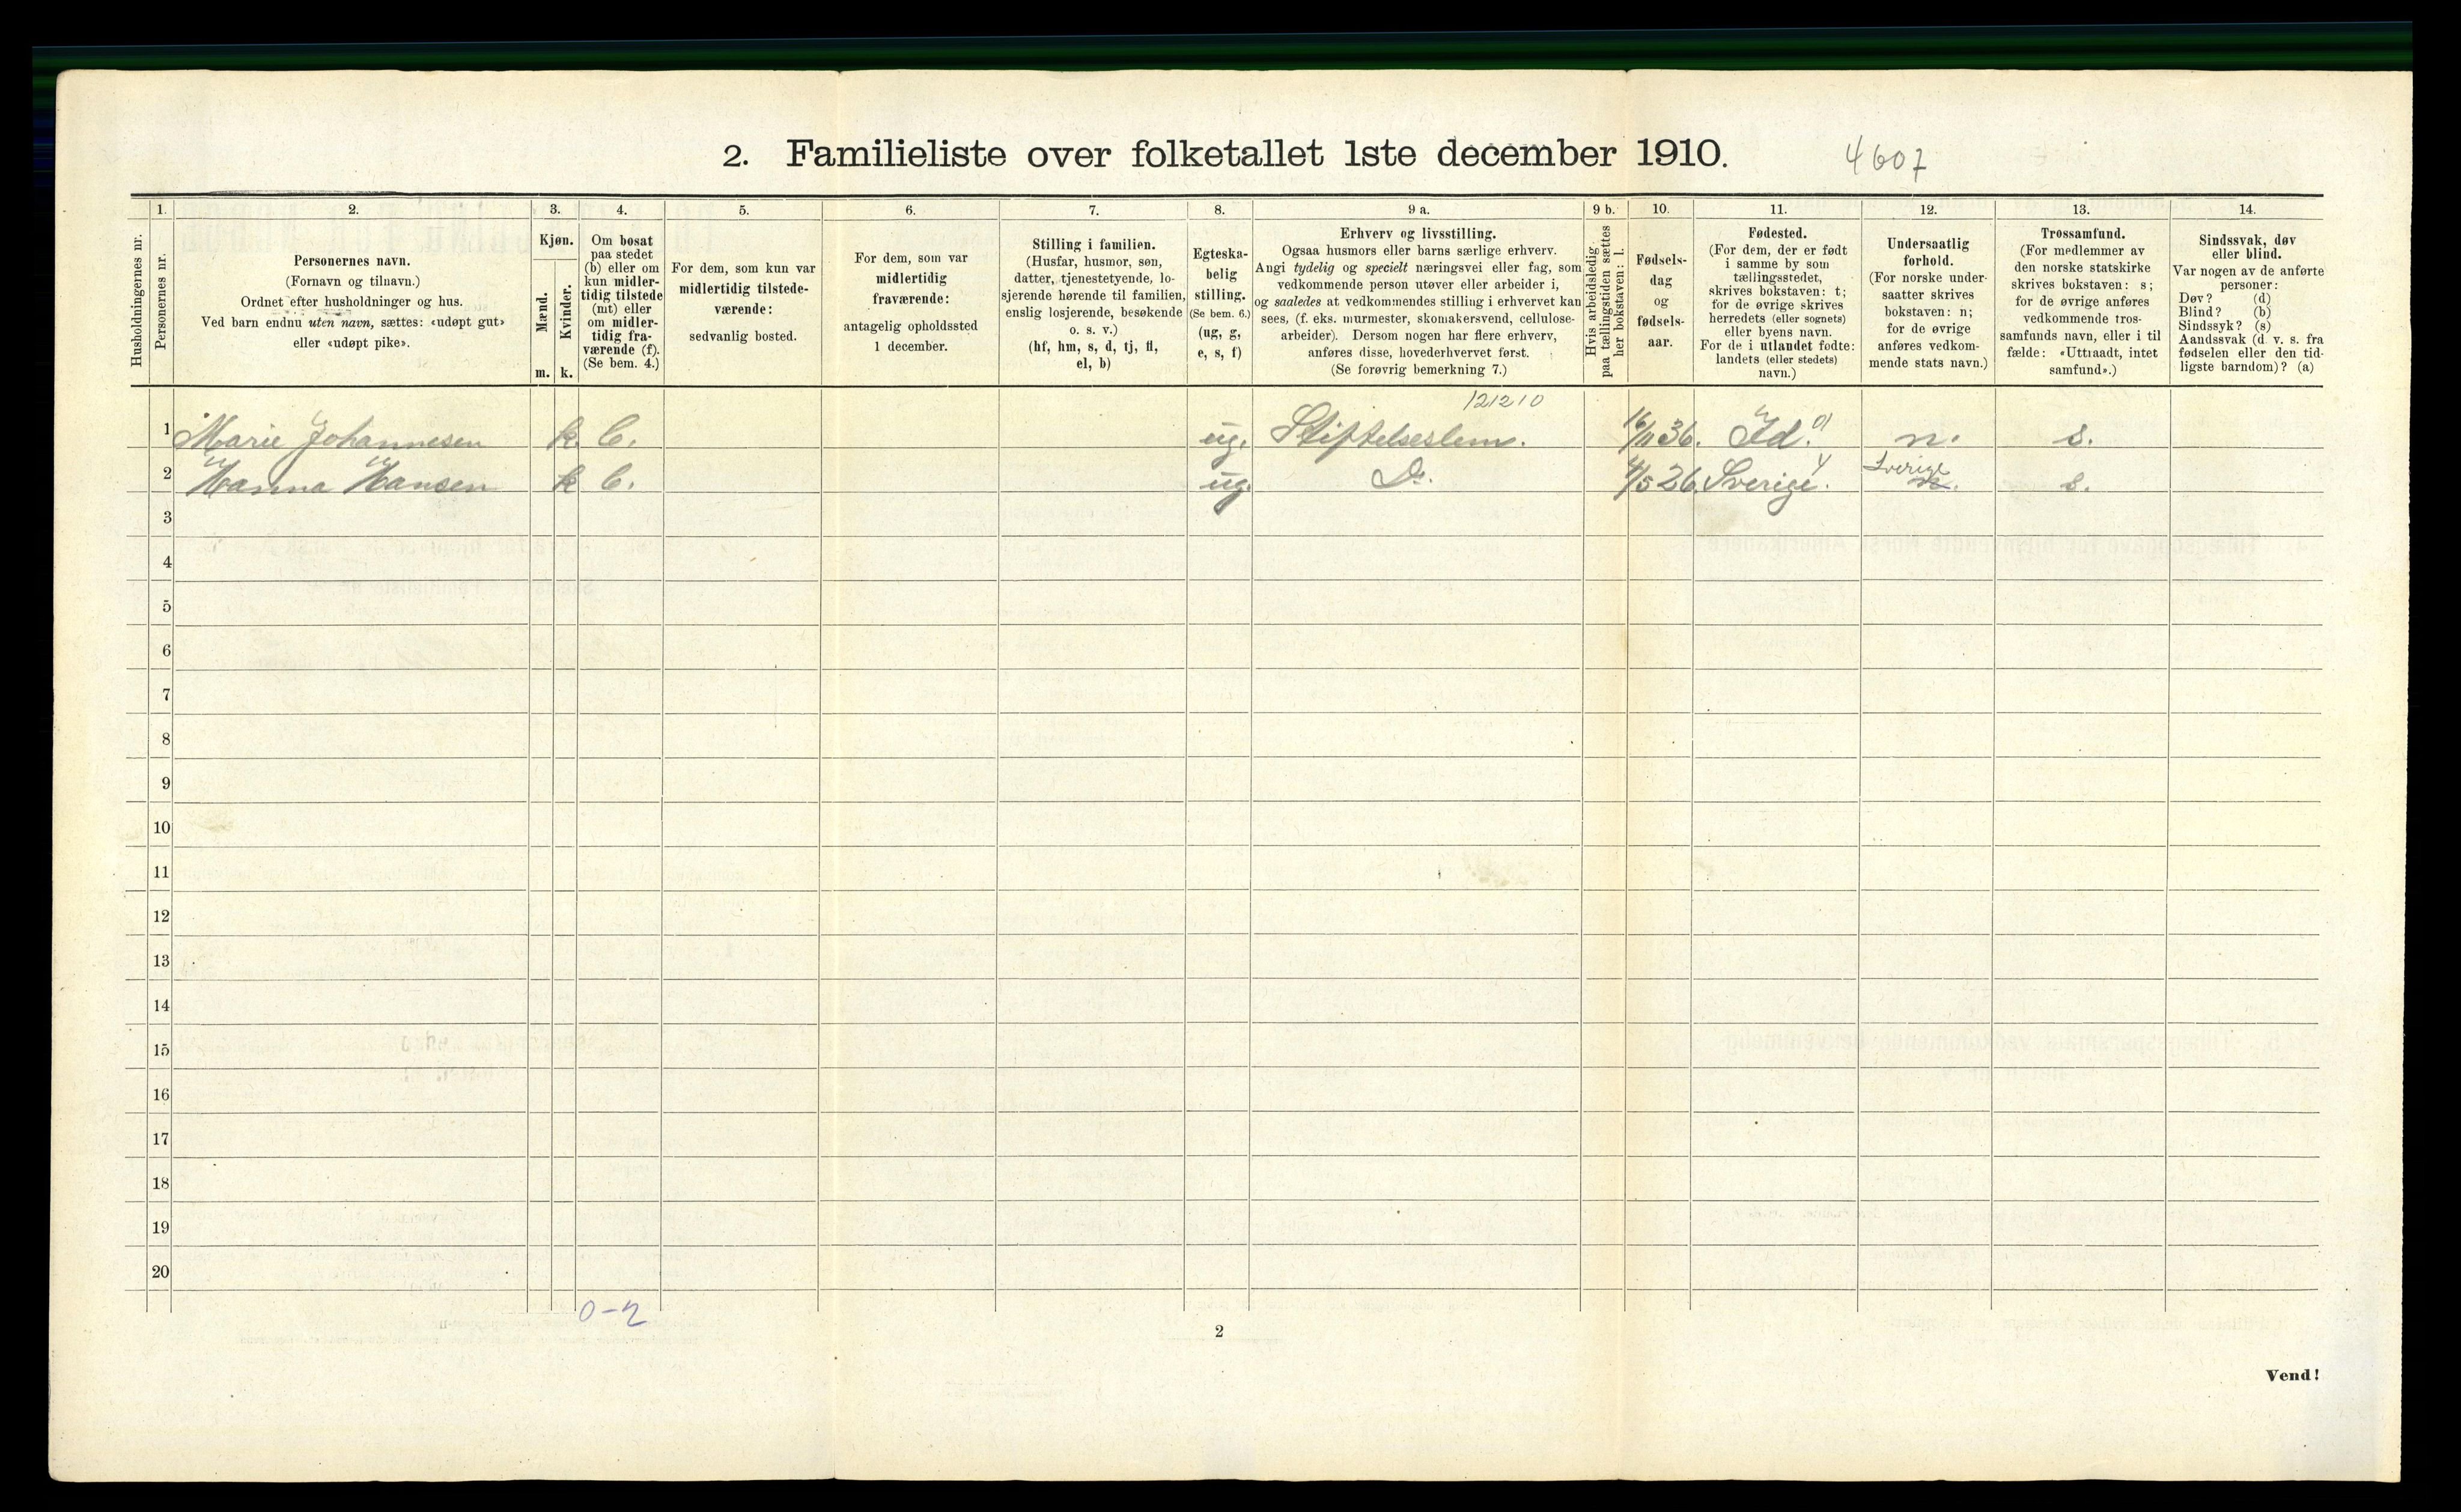 2. Familieliste over folketallet 1ste december 1910.
4607
Husholdningernes nr.
1.
Personernes nr.
2.
Personernes navn.
(Fornavn og tilnavn.)
Ordnet efter husholdninger og hus.
Ved barn endnu uten navn, sættes: «udøpt gut»
eller «udøpt pike».
3.
Kjøn.
Mænd.
Kvinder.
m. k.
4.
Om bosat
paa stedet
(b) eller om
kun midler-
tidig tilstede
(mt) eller
om midler-
tidig fra-
værende (f).
(Se bem. 4.)
5.
For dem, som kun var
midlertidig tilstede-
værende:
sedvanlig bosted.
6.
For dem, som var
midlertidig
fraværende:
antagelig opholdssted
1 december.
7.
Stilling i familien.
(Husfar, husmor, søn,
datter, tjenestetyende, lo-
sjerende hørende til familien,
enslig losjerende, besøkende
o. s. v.)
(hf, hm, s, d, tj, fl,
el, b)
8.
Egteska-
belig
stilling.
(Se bem. 6.)
(ug, g,
e, s, f)
9 a.
Erhverv og livsstilling.
Ogsaa husmors eller barns særlige erhverv.
Angi tydelig og specielt næringsvei eller fag, som
vedkommende person utøver eller arbeider i,
og saaledes at vedkommendes stilling i erhvervet kan
sees, (f. eks. murmester, skomakersvend, cellulose-
arbeider). Dersom nogen har flere erhverv,
anføres disse, hovederhvervet først.
(Se forøvrig bemerkning 7.)
9 b.
Hvis arbeidsledig
paa tællingstiden sættes
her bokstaven: l.
10.
Fødsels-
dag
og
fødsels-
aar.
11.
Fødested.
(For dem, der er født
i samme by som
tællingsstedet,
skrives bokstaven: t;
for de øvrige skrives
herredets (eller sognets)
eller byens navn.
For de i utlandet fødte:
landets (eller stedets)
navn.)
12.
Undersaatlig
forhold.
(For norske under-
saatter skrives
bokstaven: n;
for de øvrige
anføres vedkom-
mende stats navn.)
13.
Trossamfund.
(For medlemmer av
den norske statskirke
skrives bokstaven: s;
for de øvrige anføres
vedkommende tros-
samfunds navn, eller i til
fælde: «Uttraadt, intet
samfund».)
14.
Sindssvak, døv
eller blind.
Var nogen av de anførte
personer:
Døv? (d)
Blind? (b)
Sindssyk? (s)
Aandssvak (d. v. s. fra
fødselen eller den tid-
ligste barndom)? (a)
121210
1 Marie Johannesen k. b. ug. Stiftelseslem. 16/11 36. Id. n. s.
Sverige
2 Hanna Hansen k b. ug. Do. 4/5 26. Sverige. n. s.
3
4
5
6
7
8
9
10
11
12
13
14
15
16
17
18
19
20
0-2
2
Vend!